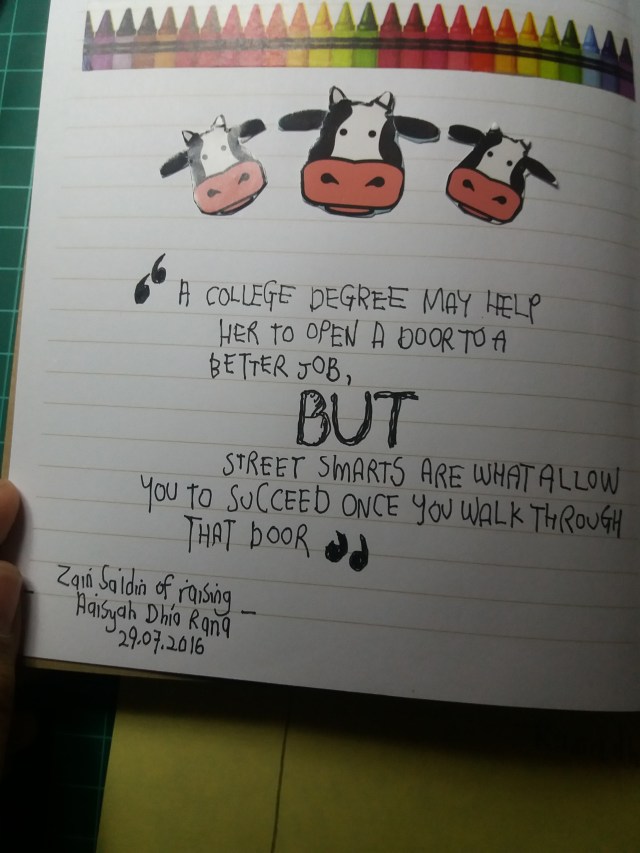 “ A COLLEGE DEGREE MAY HELP
HER TO OPEN A DOOR TO A
BETTER JOB,
BUT
STREET SMARTS ARE WHAT ALLOW
YOU TO SUCCEED ONCE YOU WALK THROUGH
THAT DOOR ”
Zain Saidin of raising
- Aaisyah Dhia Rana -
29.07.2016